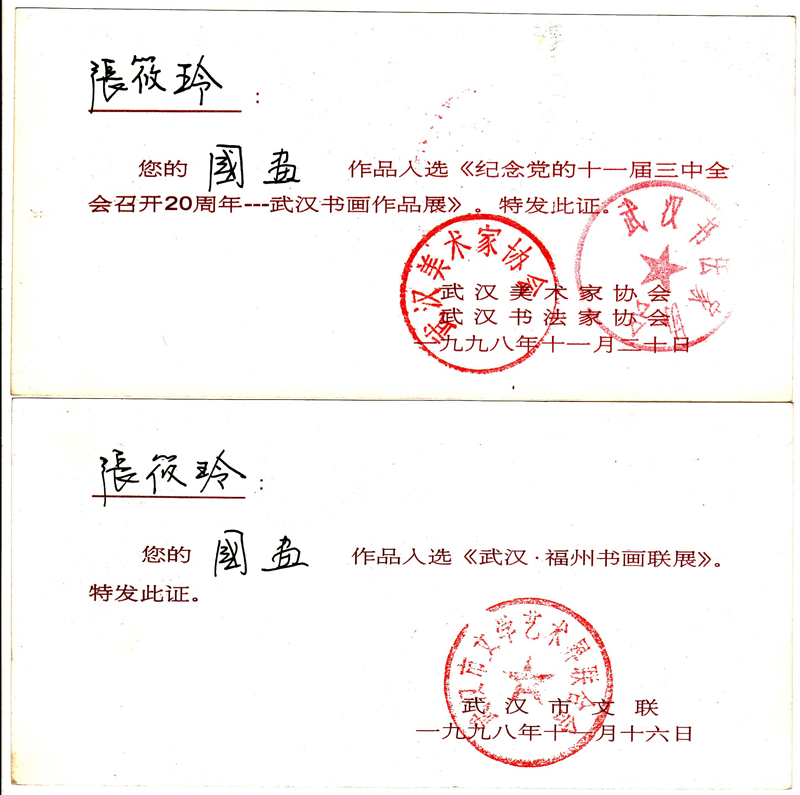 張筱玲：
您的 國畫 作品入选《纪念党的十一届三中全
会召开20周年---武汉书画作品展》。特发此证。
武汉美术家协会
武汉书法家协会
一九九八年十一月二十日
武汉美术家协会
武汉书法家协会
張筱玲：
您的 國畫 作品入选《武汉·福州书画联展》。
特发此证。
武汉市文联
一九九八年十一月十六日
武汉市文学艺术界联合会